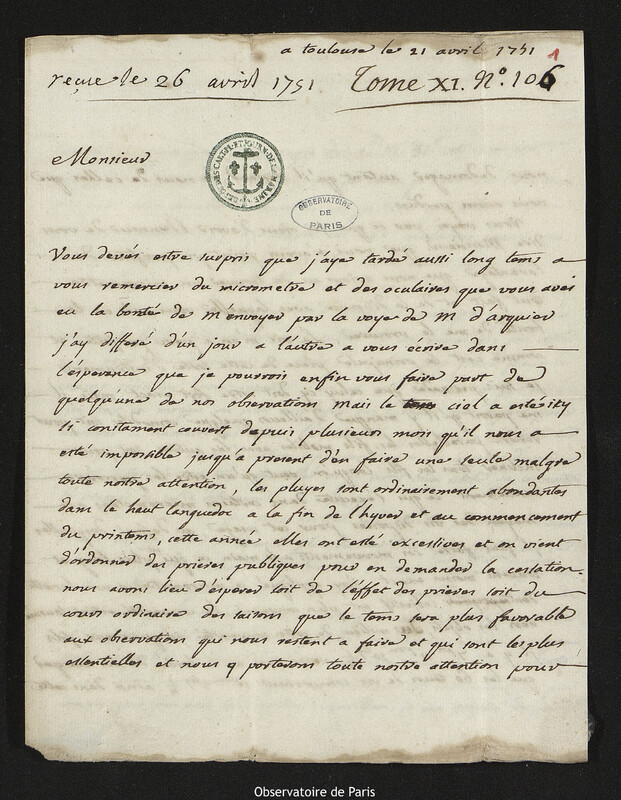 a toulouse le 21 avril 1751
1
reçue le 26 avril 1751 Tome XI. N.o 106
Monsieur
OBSERVATOIRE
DE
PARIS
Vous devés estre surpris que j'aye tardé aussi long tems a
vous remercier du micrometre et des oculaires que vous avés
eu la bonté de m'envoyer par la voye de M d'arquier
j'ay differé d'un jour a l'autre a vous écrire dans
l'ésperence que je pourrois enfin vous faire part de
quelqu'une de nos observations mais le ciel a esté icy
si constament couvert depuis plusieurs mois qu'il nous a
esté impossible jusqu'a present d'en faire une seule malgre
toute nostre attention, les pluyes sont ordinairement abondantes
dans le haut languedoc a la fin de l'hyver et au commencement
du printems, cette année elles ont esté excessives et on vient
d'ordonner des prieres publiques pour en demander la cessation.
nous avons lieu d'ésperer soit de l'éffet des prieres soit du
cours ordinaire des saisons que le tems sera plus favorable
aux observations qui nous restent a faire et qui sont les plus
essentielles et nous y porterons toute nostre attention pour
Observatoire de Paris